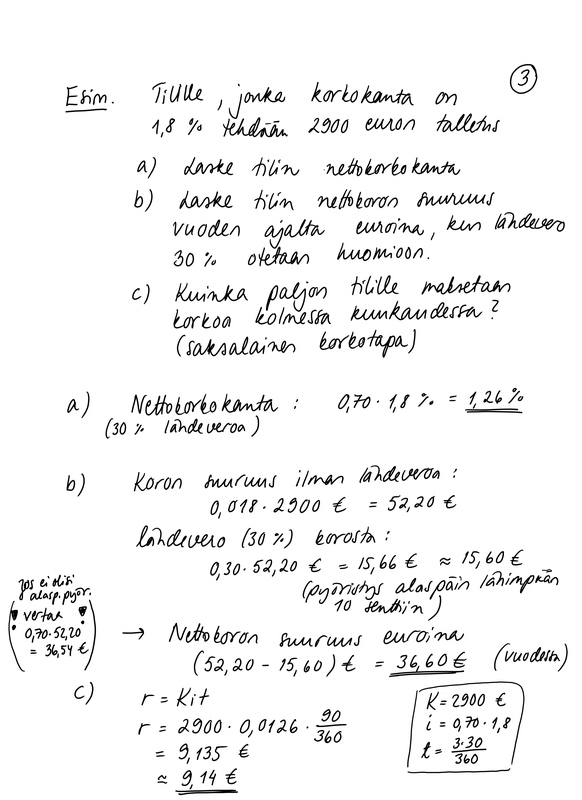 3
Esim. Tilille, jonka korkokanta on
1,8 % tehdään 2900 euron talletus
a) Laske tilin nettokorkokanta
b) Laske tilin nettokoron suuruus
vuoden ajalta euroina, kun lähdevero
30 % otetaan huomioon.
c) Kuinka paljon tilille maksetaan
korkoa kolmessa kuukaudessa?
(saksalainen korkotapa)
a) Nettokorkokanta : 0,70 · 1,8 % = 1,26 %
(30 % lähdeveroa)
b) Koron suuruus ilman lähdeveroa :
0,018 · 2900 € = 52,20 €
lähdevero (30 %) korosta :
0,30 · 52,20 € = 15,66 € ≈ 15,60 €
(pyöristys alaspäin lähimpään
10 senttiin)
Jos ei olisi
alasp. pyör.
vertaa
0,70 · 52,20
= 36,54 €
→ Nettokoron suuruus euroina
(52,20 - 15,60) € = 36,60 € (vuodessa)
c) r = Kit
r = 2900 · 0,0126 · 90/360
= 9,135 €
≈ 9,14 €
K = 2900 €
i = 0,70 · 1,8
t = 3·30/360